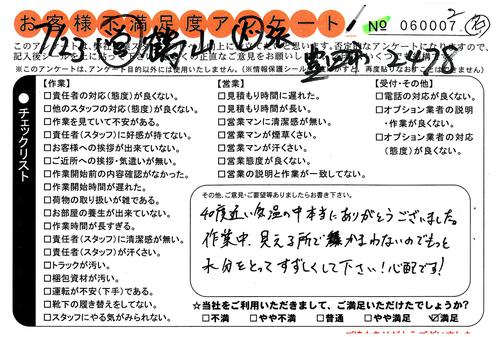 お客様不満足度アンケート
No 060007
7/23
2428
■チェックリスト
【作業】
□責任者の対応(態度)が良くない。
□他のスタッフの対応(態度)が良くない。
□作業を見ていて不安がある。
□責任者(スタッフ)に好感が持てない。
□お客様への挨拶が出来ていない。
□ご近所への挨拶・気遣いが無い。
□作業開始前の内容確認がなかった。
□作業開始時間が遅れた。
□荷物の取り扱いが雑である。
□お部屋の養生が出来ていない。
□作業時間が長すぎる。
□責任者(スタッフ)に清潔感が無い。
□責任者(スタッフ)が汗くさい。
□トラックが汚い。
□梱包資材が汚い。
□運転が不安(下手)である。
□靴下の履き替えをしてない。
□スタッフにやる気がみられない。
【営業】
□見積もり時間に遅れた。
□見積もり時間が長い。
□営業マンに清潔感が無い。
□営業マンが煙草くさい。
□営業マンが汗くさい。
□営業態度が良くない。
□営業の説明と作業が一致してない。
【受付・その他】
□電話の対応が良くない。
□オプション業者の説明
・作業が良くない。
□オプション業者の対応
(態度)が良くない。
その他、ご意見・ご要望等ありましたらお書き下さい。
40度近い気温の中本当にありがとうございました。
作業中、見える所でかまわないのでもっと
水分をとってすずしくして下さい!心配です!
☆当社をご利用いただきまして、ご満足いただけたでしょうか?
□不満 □やや不満 □普通 □やや満足 ☑満足